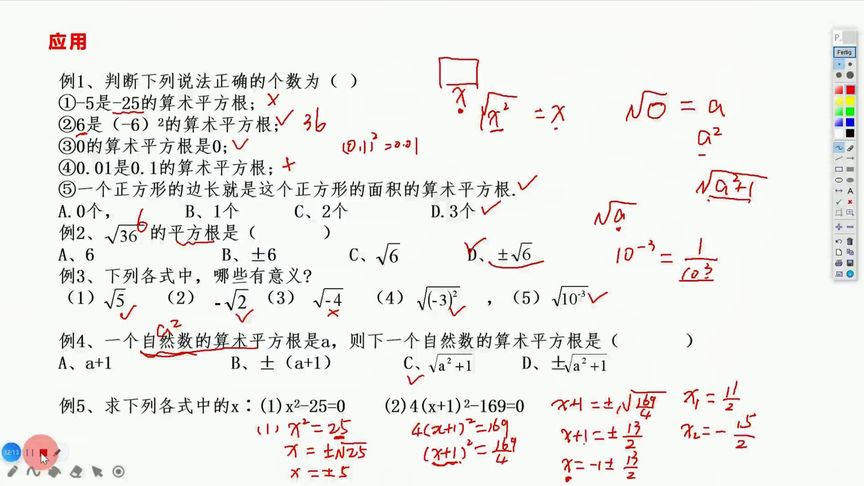 应用
例1、判断下列说法正确的个数为（ ）
①-5是-25的算术平方根；×
②6是（-6）²的算术平方根；✓ 36
③0的算术平方根是0；✓ (0.1)²=0.01
④0.01是0.1的算术平方根；×
⑤一个正方形的边长就是这个正方形的面积的算术平方根.✓
A.0个， B、1个 C、2个 D.3个✓
x √x² = x √0 = a
a²
√a²+1
√a
10⁻³ = 1/10³
例2、√36 6 的平方根是（ ）
A、6 B、±6 C、√6 D、±√6 ✓
例3、下列各式中，哪些有意义？
（1）√5 ✓ （2） -√2 ✓ （3） √-4 × （4） √(-3)² ✓ ，（5）√10⁻³ ✓
a²
例4、一个自然数的算术平方根是a，则下一个自然数的算术平方根是（ ）
A、a+1 B、±（a+1） C、√a²+1 ✓ D、±√a²+1
例5、求下列各式中的x：(1)x²-25=0 (2)4(x+1)²-169=0
(1) x²=25
x=±√25
x=±5
4(x+1)²=169
(x+1)²=169/4
x+1=±√169/4
x+1=±13/2
x=-1±13/2
x₁=11/2
x₂=-15/2
Fertig
32:13